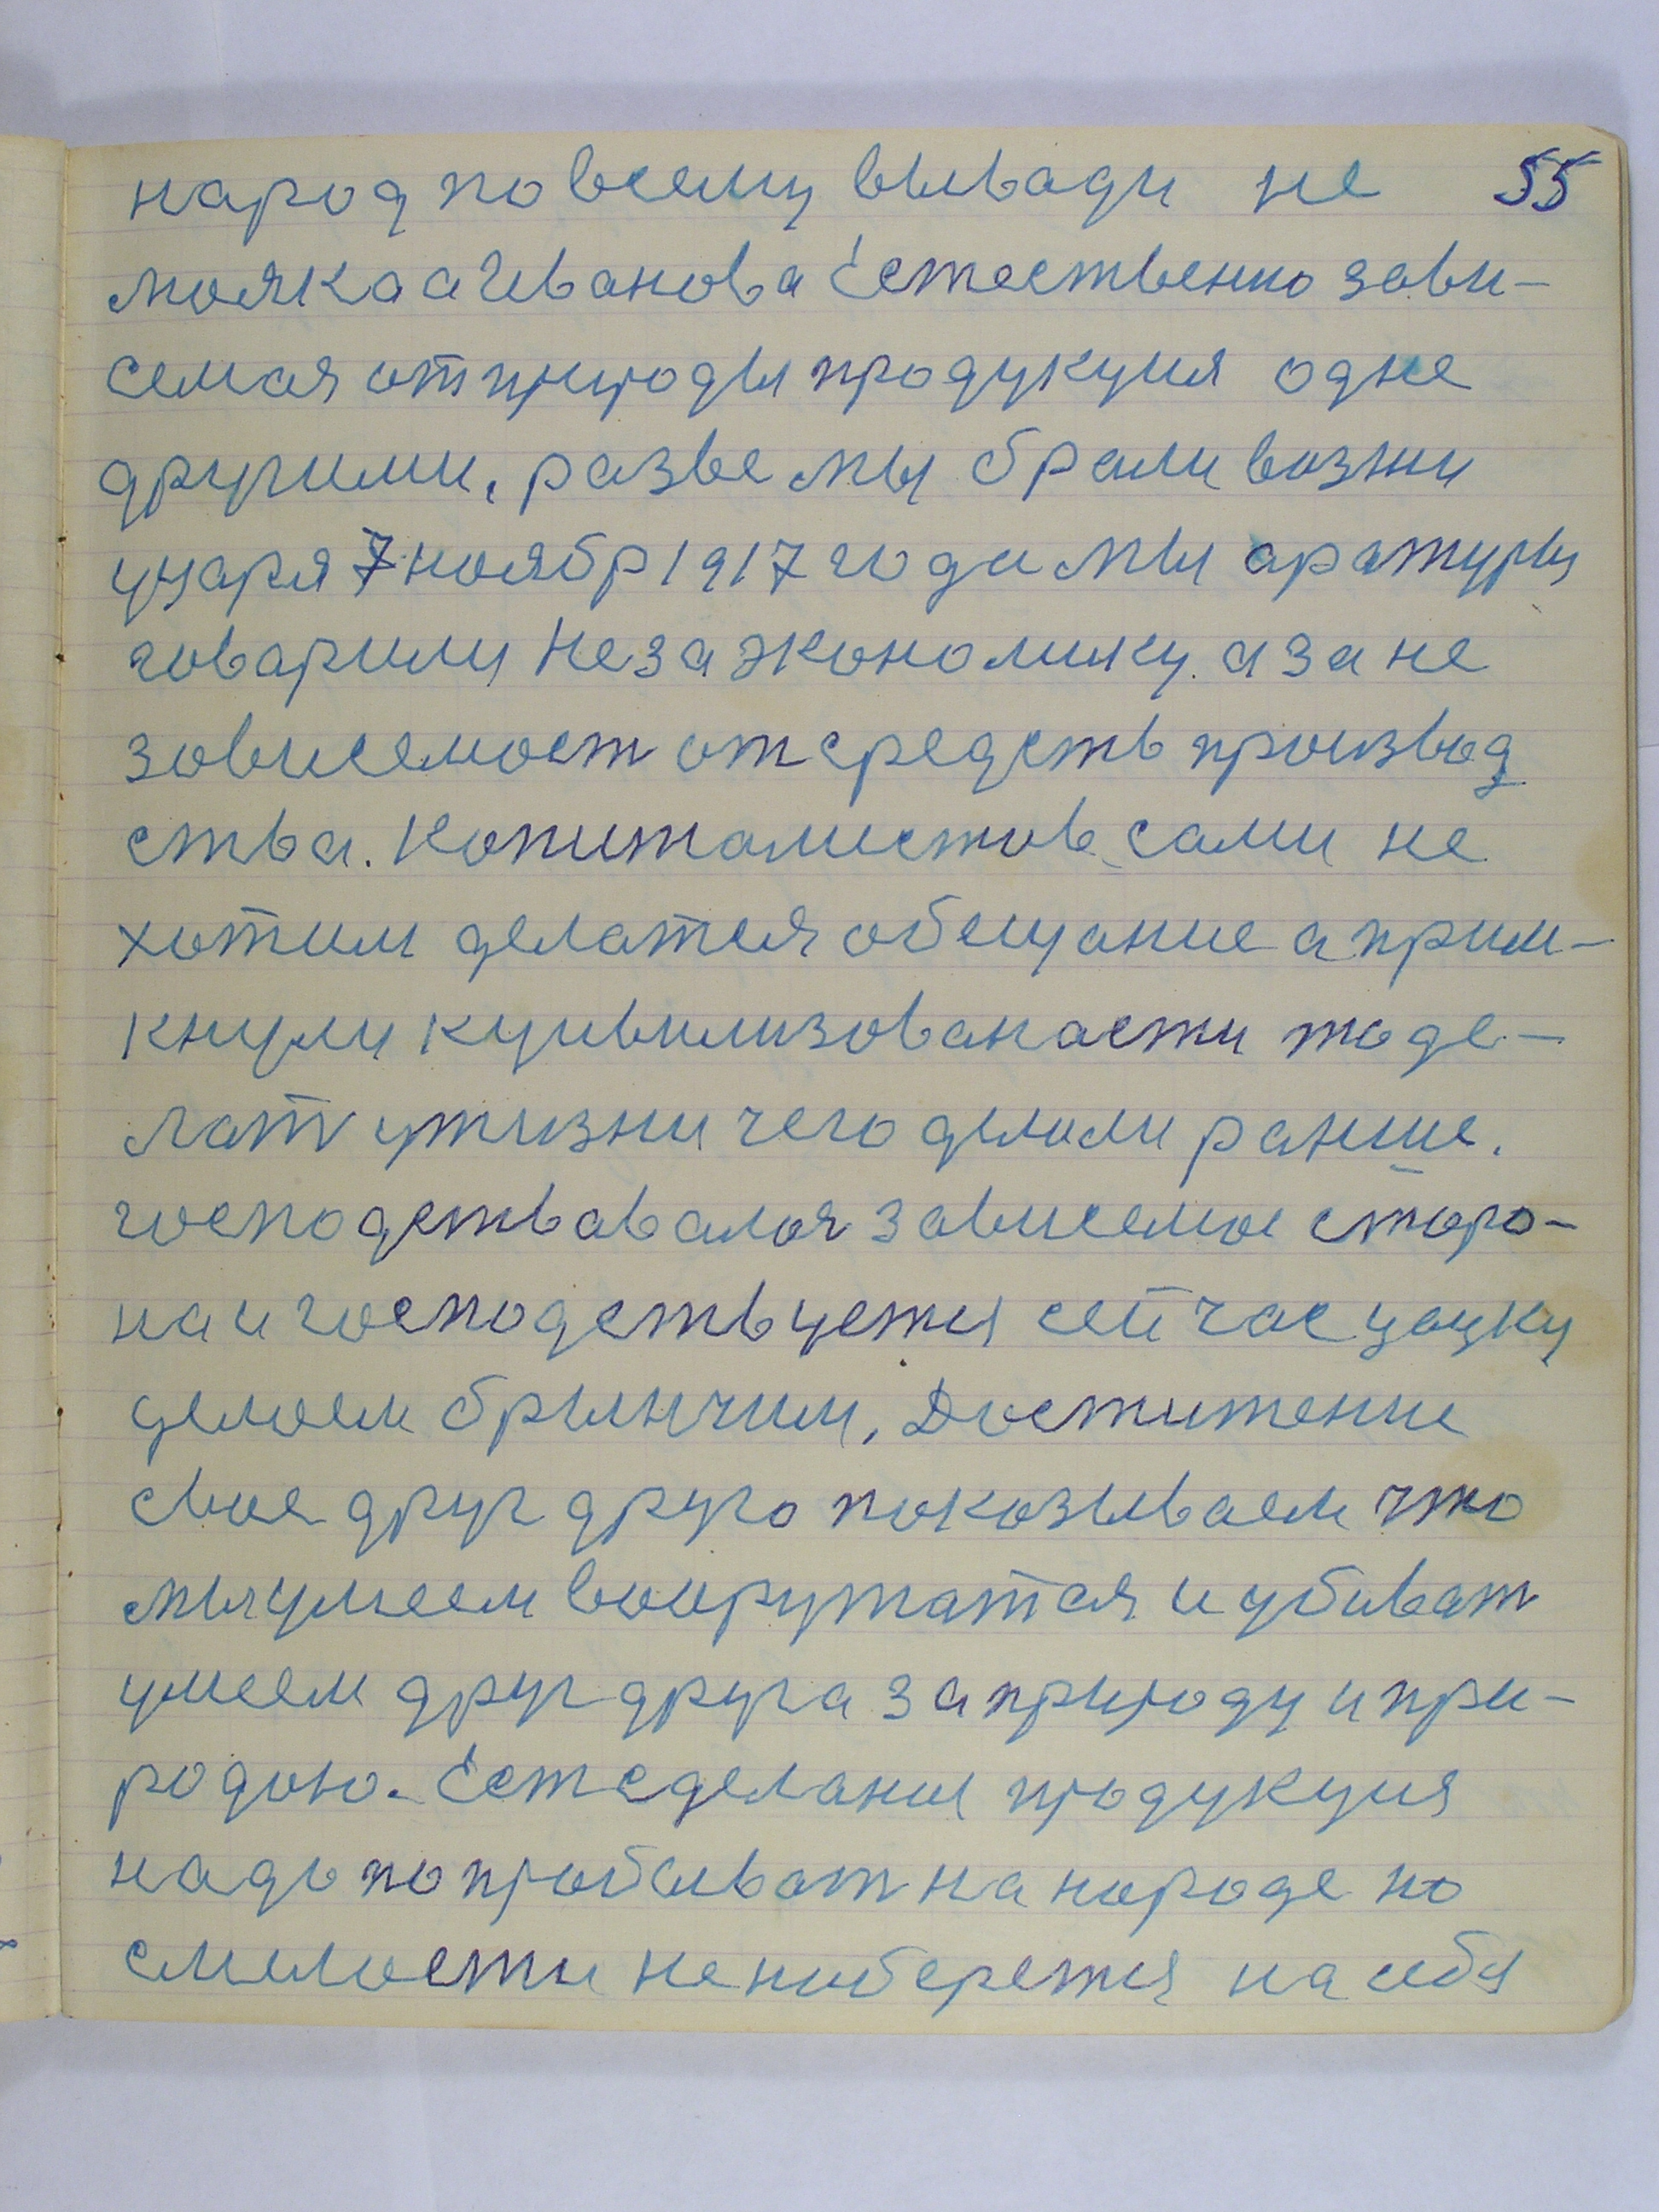 народ по всему выводи не 55
мояка а Иванова Естественно зави-
семая от природы продукция одне
другими, разве мы брали возжи
у царя 7 ноябр 1917 года мы аратуры
говарили не за экономику. а за не
зависемост от средств производ
ства. Копиталистов сами не
хотим делатся обещание а прим-
кнули к цивилизованасти то де-
лат у жизни чего делали ранше.
господствавалоя зависемое сторо-
на и господствуется сейчас цацку
делаем брынчим, Достижение
свое друг друго показываем что
мы умеем воиружатся и убиват
умеем друг друга за природу и при-
родою. Ест сделании продукция
надо попробыват на народе но
смелости не наберется на себя